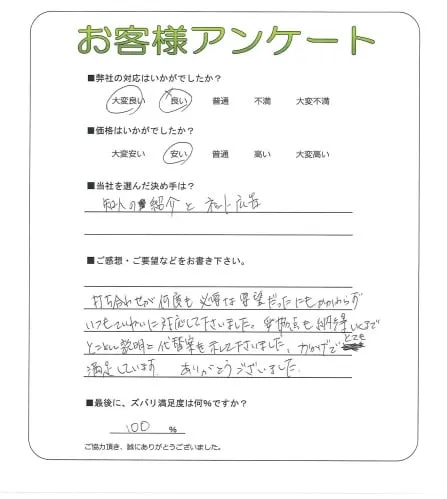 お客様アンケート
■弊社の対応はいかがでしたか？
大変良い 良い 普通 不満 大変不満
■価格はいかがでしたか？
大変安い 安い 普通 高い 大変高い
■当社を選んだ決め手は？
知人の紹介と ネット広告
■ご感想・ご要望などをお書き下さい。
打ち合わせが何度も必要な要望だったにもかかわらず
いつもていねいに対応して下さいました。妥協点も納得いくまで
とことん説明と代替案を示して下さいました。おかげでとても
満足しています。 ありがとうございました。
■最後に、ズバリ満足度は何％ですか？
100 ％
ご協力頂き、誠にありがとうございました。